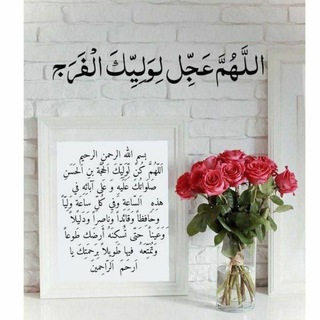 اللَّهُمَّ عَجِّل لِوَلِيِّكَ الْفَرَج
بسم الله الرحمن الرحيم
اَللّهُمَّ كُن لِوَلِيِّكَ الحُجَّةِ بنِ الحَسَنِ
صَلَواتُكَ عَلَيهِ وَ عَلى آبائِهِ في
هذِهِ السّاعَةِ وَفي كُلِّ ساعَةٍ وَلِيّاً
وَحافِظاً وَقائِداً وَناصِراً وَدَليلاً
وَعَيناً حَتّى تُسكِنَهُ أرضَكَ طَوعاً
وَتُمَتِّعَهُ فيها طَويلاً بِرَحمَتِكَ يا
اَرحَمَ الرّاحِمينَ